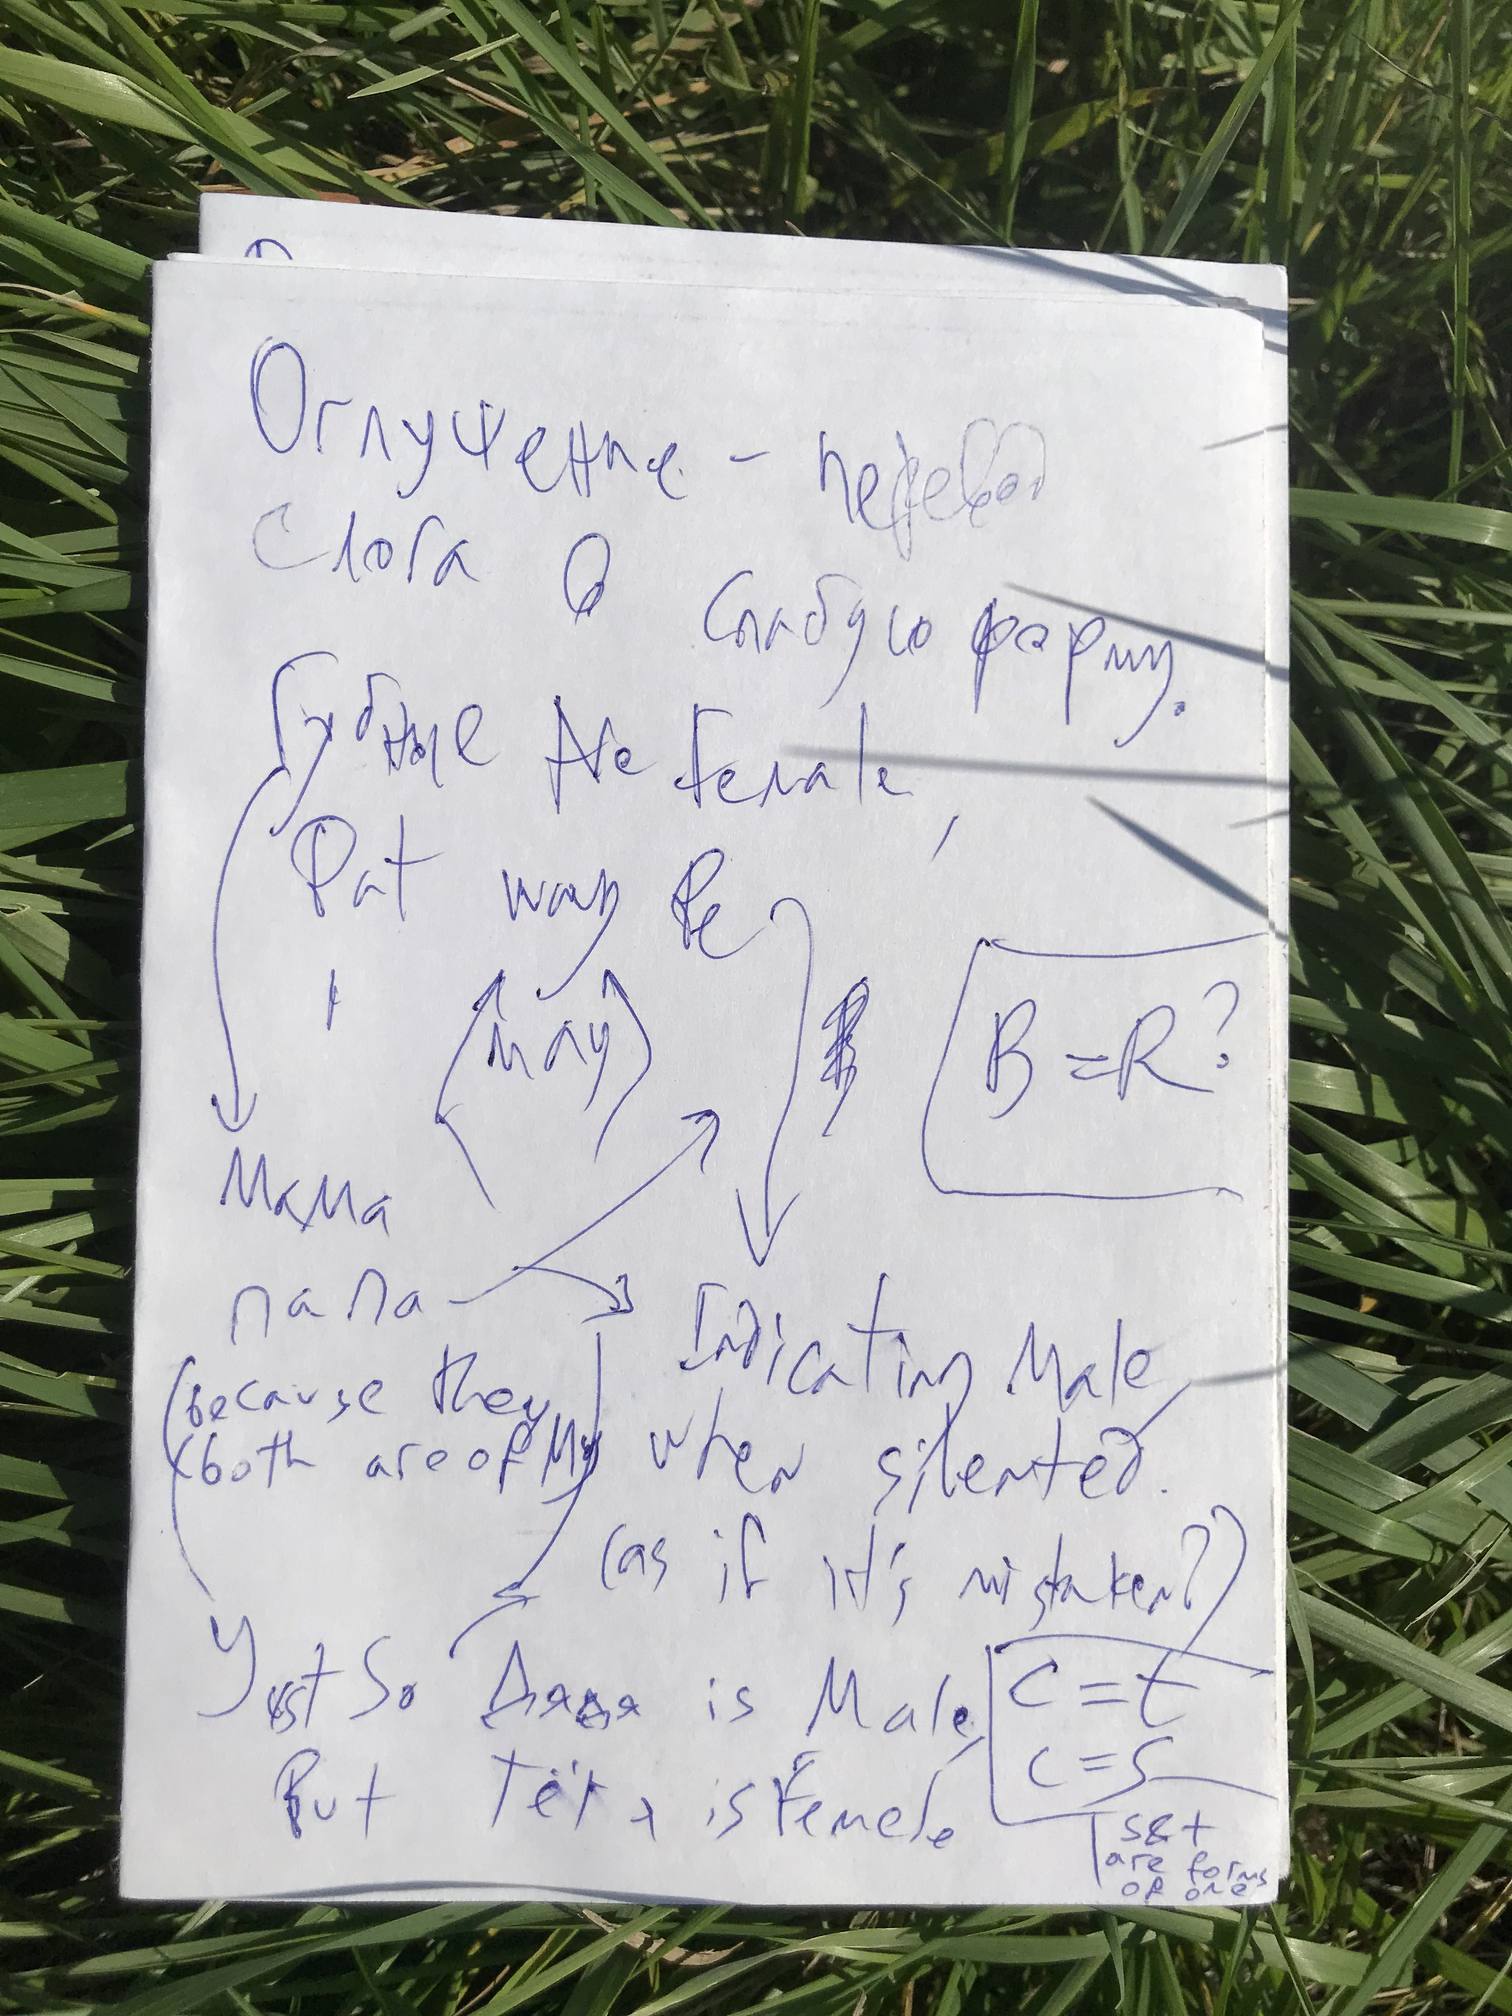 Оглушение - перевод
слога в слабую форму.
Губные Are Female,
But way Be
(may)
B = R?
Мама
папа
(because they
both are of My
Indicating Male
when silented.
(as if it's mistaken?)
Yust So Дядя is Male,
But тётя is Female
C = t
C = S
S&t
are forms
of one